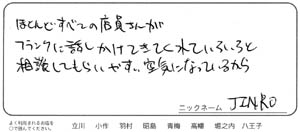 ほとんどすべての店員さんが
フランクに話しかけてきてくれていろいろと
相談してもらいやすい空気になっているから
ニックネーム JINRO
よく利用されるお店を○で囲んでください。 立川 小作 羽村 昭島 青梅 高幡 堀之内 八王子